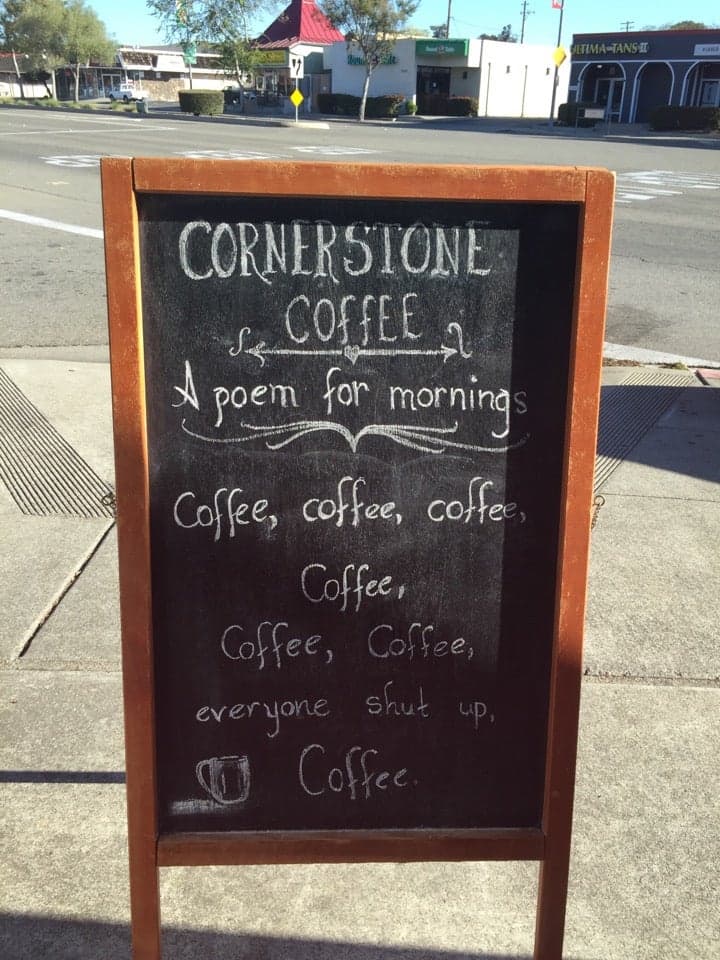 ULTIMA TANS II
CORNERSTONE
COFFEE
A poem for mornings
Coffee, coffee, coffee,
Coffee,
Coffee, Coffee,
everyone shut up,
Coffee.